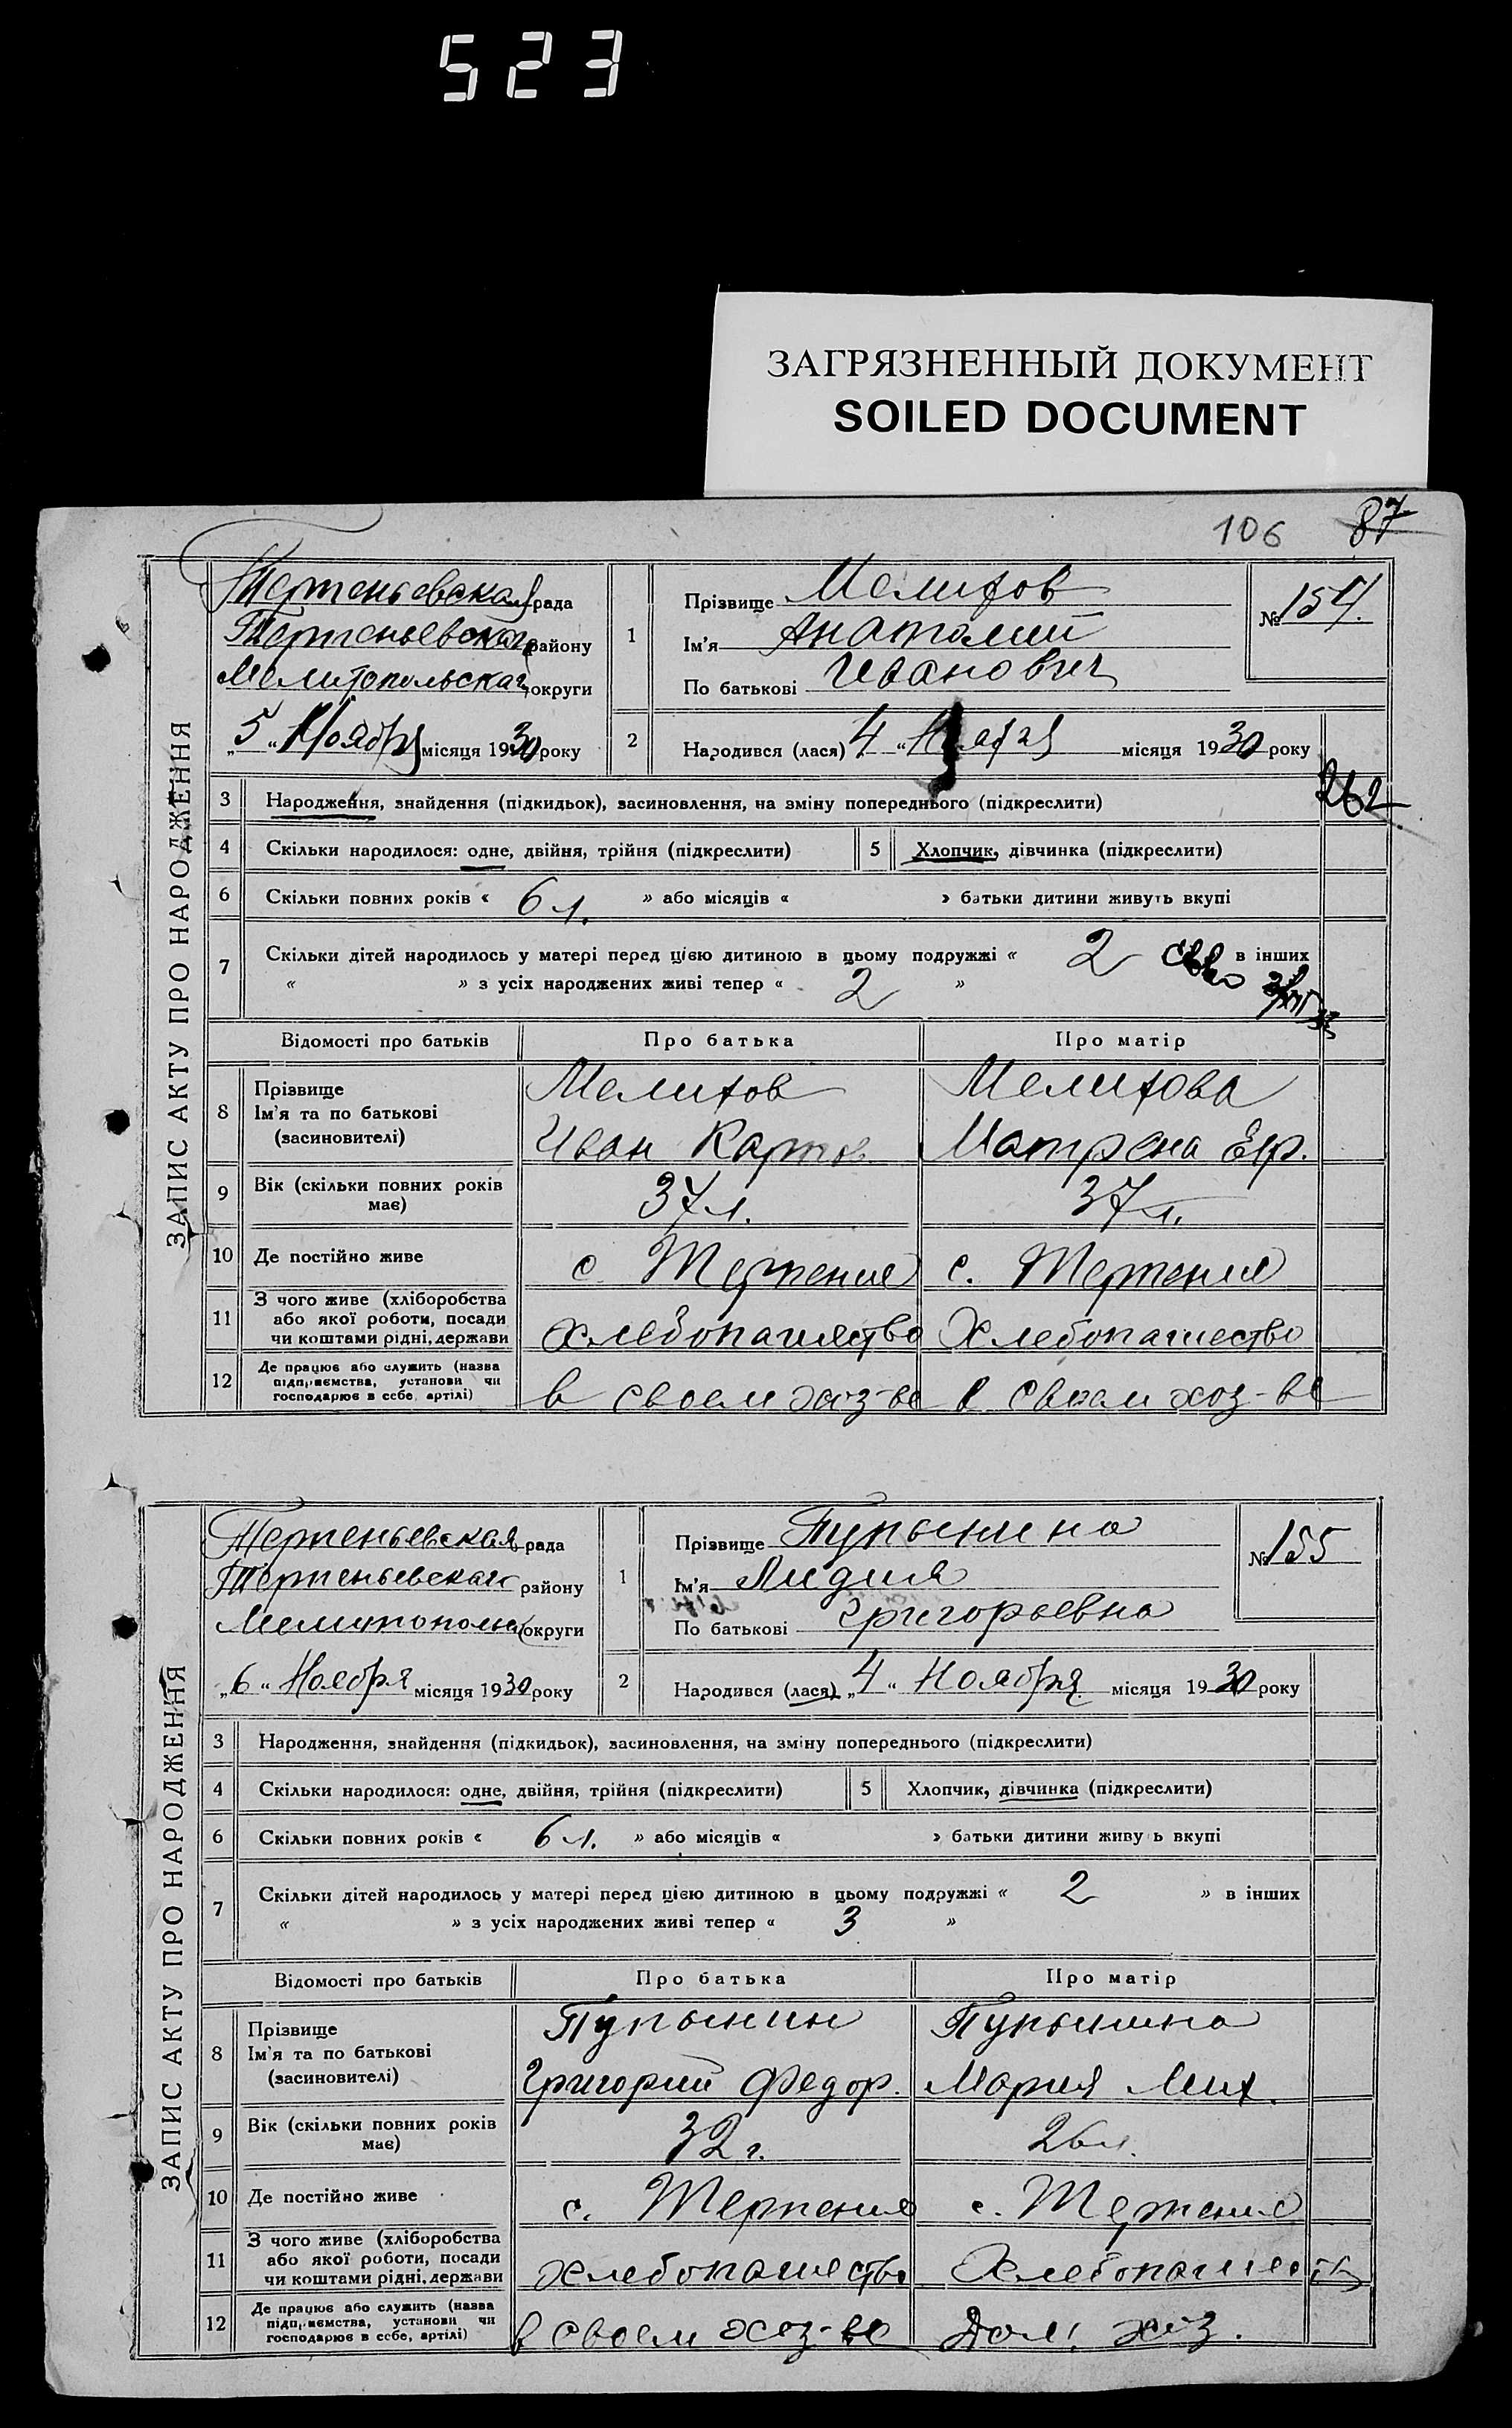 523
ЗАГРЯЗНЕННЫЙ ДОКУМЕНТ
SOILED DOCUMENT
106 87
ЗАПИС АКТУ ПРО НАРОДЖЕННЯ
Терпеньевская рада
Терпеньевскаго району
Мелитопольскаго округи
„5“ Ноября місяця 1930 року
1
Прізвище Мелихов
Ім'я Анатолий
По батькові Иванович
№ 154.
2
Народився (лася) 4 “ Ноября місяця 1930 року
262
3 Народження, знайдення (підкидьок), засиновлення, на зміну попереднього (підкреслити)
4 Скільки народилося: одне, двійня, трійня (підкреслити) 5 Хлопчик, дівчинка (підкреслити)
6 Скільки повних років « 6 л. » або місяців « » батьки дитини живуть вкупі
7 Скільки дітей народилось у матері перед цією дитиною в цьому подружжі « 2 в інших
« » з усіх народжених живі тепер « 2 »
Відомості про батьків Про батька Про матір
8 Прізвище
Ім'я та по батькові
(засиновителі)
Мелихов Мелихова
Иван Матрена Ефр.
9 Вік (скільки повних років
має)
37 л. 37 л.
10 Де постійно живе с. Терпение с. Терпение
11 З чого живе (хліборобства
або якої роботи, посади
чи коштами рідні, держави
хлебопашество Хлебопашество
12 Де працює або служить (назва
підприємства, установи чи
господарює в себе, артілі)
в своем хоз-ве в своем хоз-ве
ЗАПИС АКТУ ПРО НАРОДЖЕННЯ
Терпеньевская рада
Терпеньевскаго району
Мелитопольск округи
„6“ Ноября місяця 1930 року
1
Прізвище Пупынина
Ім'я Лидия
По батькові Григорьевна
№ 155
2
Народився (лася) „4“ Ноября місяця 1930 року
3 Народження, знайдення (підкидьок), засиновлення, на зміну попереднього (підкреслити)
4 Скільки народилося: одне, двійня, трійня (підкреслити) 5 Хлопчик, дівчинка (підкреслити)
6 Скільки повних років « 6 л. » або місяців « » батьки дитини живу ь вкупі
7 Скільки дітей народилось у матері перед цією дитиною в цьому подружжі « 2 » в інших
« » з усіх народжених живі тепер « 3 »
Відомості про батьків Про батька Про матір
8 Прізвище
Ім'я та по батькові
(засиновителі)
Пупынин Пупынина
Григорий Федор. Мария Мих.
9 Вік (скільки повних років
має)
32 г. 26 л.
10 Де постійно живе с. Терпение с. Терпение
11 З чого живе (хліборобства
або якої роботи, посади
чи коштами рідні, держави
хлебопашество Хлебопашество
12 Де працює або служить (назва
підприємства, установи чи
господарює в себе, артілі)
в своем хоз-ве Дом. хоз.